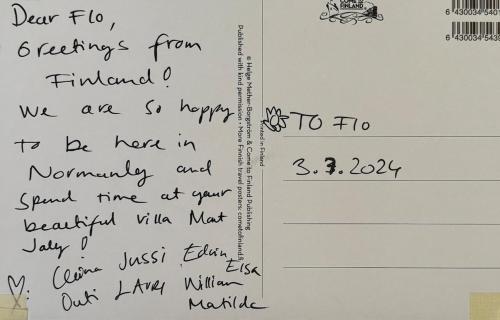 Dear Flo,
Greetings from
Finland!
We are so happy
to be here in
Normandy and
spend time at your
beautiful villa Mont
Joly!
Jussi Edvin
Elsa
Outi LAURI William
Matilda
© Helge Mether-Borgström & Come to Finland Publishing
Published with kind permission • More Finnish travel posters: cometofinland.fi
Printed in Finland
COME TO
FINLAND
TO Flo
3.7.2024